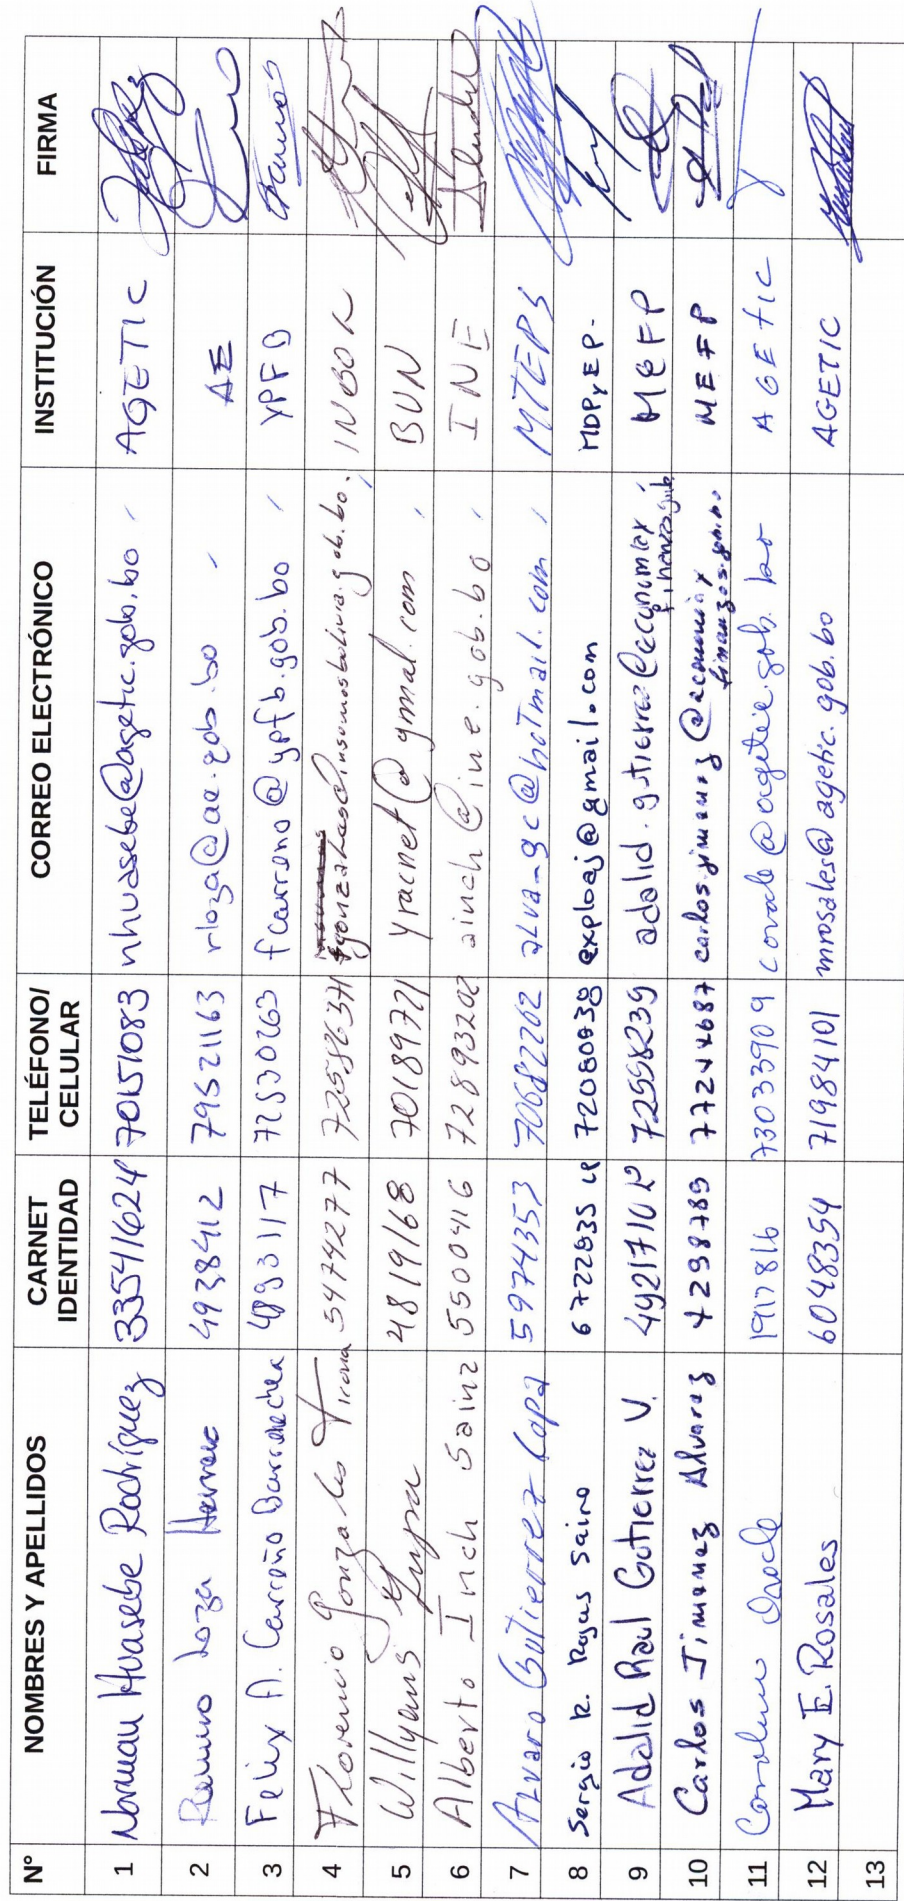 N° NOMBRES Y APELLIDOS CARNET IDENTIDAD TELÉFONO/ CELULAR CORREO ELECTRÓNICO INSTITUCIÓN FIRMA
1 Norman Huasebe Rodríguez 33541624 70151083 nhuasebe@agetic.gob.bo AGETIC
2 Ramiro Loza 4938412 79521163 rloza@ae.gob.bo AE
3 Felix A. Carreño 4893117 72530263 fcarreno@ypfb.gob.bo YPFB
4 Florencio Gonzales 5474277 fgonzales@insumosbolivia.gob.bo
5 Willyams 4819168 70189721 BUN
6 Alberto Inch Sainz 5500416 72893202 ainch@ine.gob.bo INE
7 Alvaro Gutierrez Copa 5974353 70682262 alva_gc@hotmail.com MTEPS
8 Sergio R. Rojas Saire 6722835 LP 72080838 exploaj@gmail.com MDPyEP.
9 Adalid Raul Gutierrez V. adalid.gutierrez@economiay finanzas.gob MEFP
10 Carlos Jimenez Alvarez 4298789 77244687 carlos.jimenez@economiay finanzas.gob.bo MEFP
11 1917816 73033909 AGETIC
12 Mary E. Rosales 6048354 71984101 mrosales@agetic.gob.bo AGETIC
13